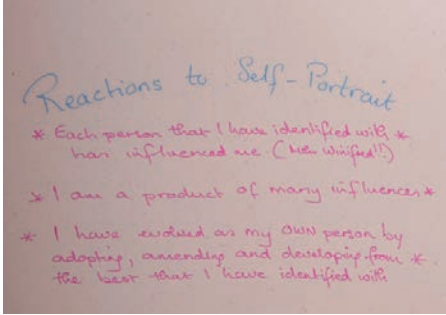 Reactions to Self-Portrait
* Each person that I have identified with *
has influenced me ( Winifred!!)
* I am a product of many influences *
* I have evolved as my OWN person by
adopting, amending and developing from *
the best that I have identified with